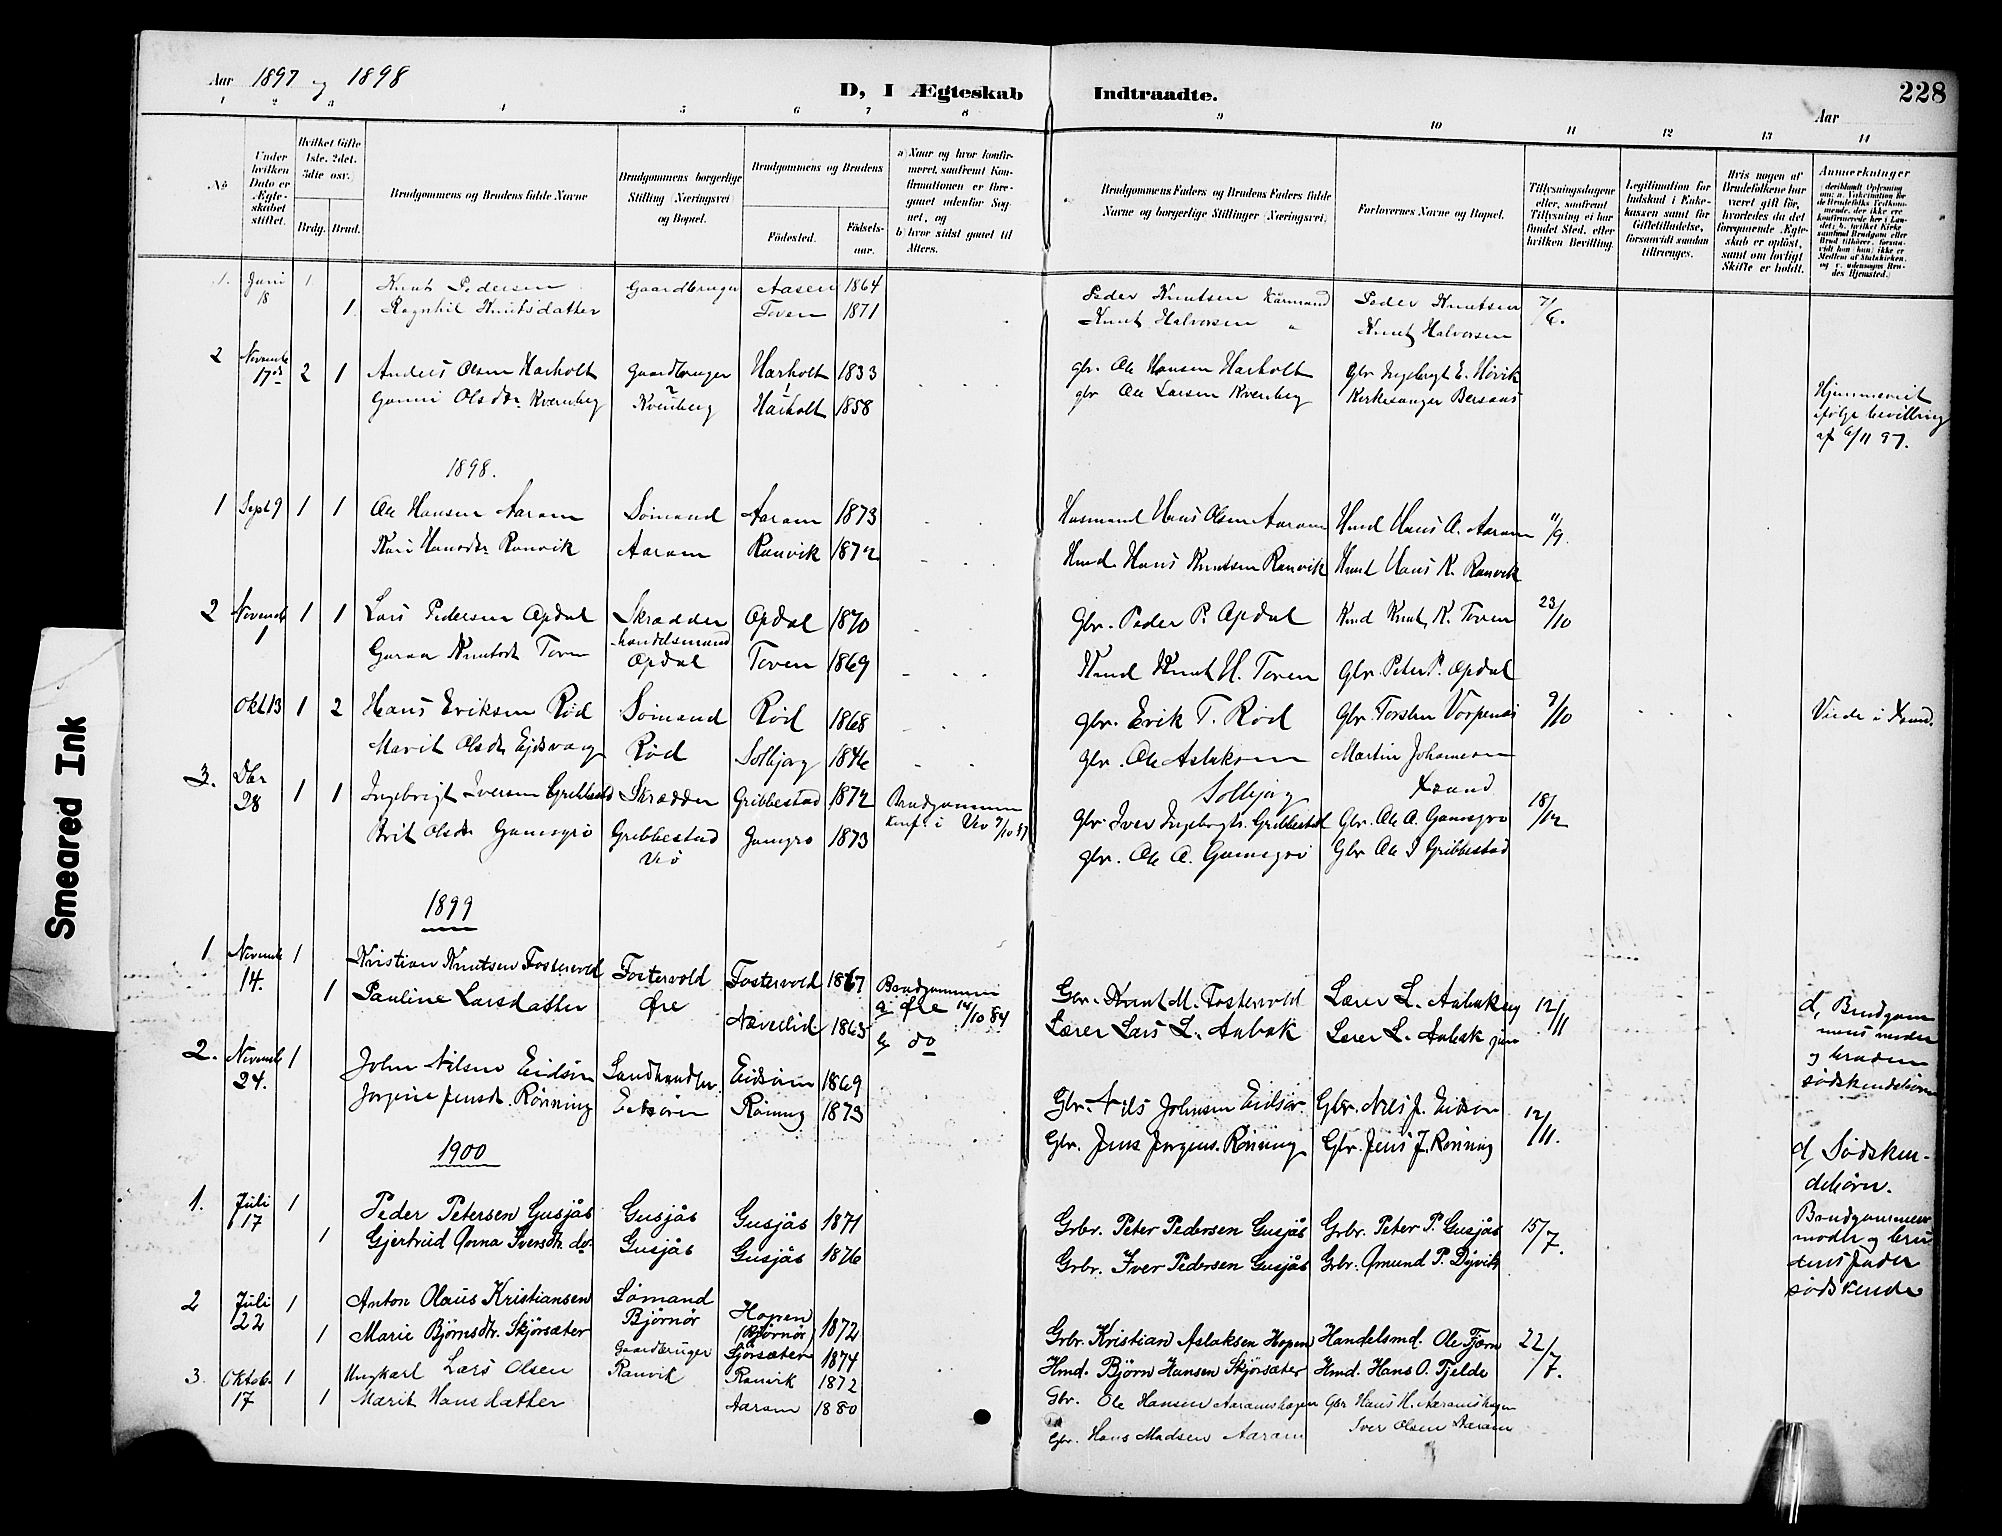 Aar 1897 og 1898
D, I Ægteskab Indtraadte.
Aar
228
1 2 3 4 5 6 7 8 9 10 11 12 13 14
No
Under hvilken Dato er Ægteskabet stiftet.
Hvilket Gifte 1ste, 2det, 3die osv.)
Brdg. Brud.
Brudgommens og Brudens fulde Navne
Brudgommens borgerlige Stilling (Næringsvei) og Bopæl.
Brudgommens og Brudens
Fødested. Fødselsaar.
a) Naar og hvor konfirmeret, samt om Konfirmationen er foregaaet udenfor Sognet, og
b) hvor sidst gaaet til Alters.
Brudgommens Faders og Brudens Faders fulde Navne og borgerlige Stillinger (Næringsvei)
Forlovernes Navne og Bopæl.
Tillysningsdagene eller, saafremt Tillysning ei har fundet Sted, efter hvilken Bevilling.
Legitimation for Indskud i Enkekassen samt for Giftetilladelse, forsaavidt saadan tiltrænges.
Hvis nogen af Brudefolkene har været gift før, hvorledes da det foregaaende Ægteskab er opløst, samt om lovligt Skifte er holdt.
Anmerkninger
1. Juni 18 1 Knut Pedersen Gaardbruger Aasen 1864 Peder Knutsen Kårmand Peder Knutsen 7/6.
1 Ragnhil Knutsdatter Toven 1871 Knut Halvorsen " Knut Halvorsen
2 Novemb 17de 2 1 Anders Olsen Harholt Gaardbruger Harholt 1833 gbr. Ole Hansen Harholt Gbr Ingebrigt E. Høvik
Gunni Olsdtr Kvernberg Kvernberg Harholt 1858 gbr Ole Larsen Kvernberg Kirkesanger Bersaas
Hjemmeviet
ifølge bevilling
af 6/11 97.
1898.
1 Sept 9 1 1 Ole Hansen Aaram Sømand Aaram 1873 Husmand Hans Olsen Aaram Hmd Hans A. Aaram 11/9.
Kari Hansdtr Ranvik Aaram Ranvik 1872 Hmd. Hans Knutsen Ranvik Hmd Hans K. Ranvik
2 Novemb 1 1 1 Lars Pedersen Opdal Skrædder Opdal 1870 Gbr. Peder P. Opdal Kmd Knut K. Toven 23/10
handelsmand
Guraa Knutsdt Toven Opdal Toven 1869 Kmd Knut H. Toven Gbr. Peter P. Opdal
Okt 13 1 2 Hans Eriksen Rød Sømand Rød 1868 Gbr. Erik T. Rød Gbr. Torsten Vorpenæs 9/10
Marit Olsdtr Eidsvaag Rød Solbjørg 1846 Gbr. Ole Aslaksen Martin Johansen
Solbjørg Xsund
Viede i Xsund.
3. Dbr 28 1 1 Ingebrigt Iversen Gribbestad Skrædder Gribbestad 1872 Brudgommen Gbr. Iver Ingebrigts. Gribbestad Gbr. Ole A. Gamsgrø 18/12
konf. i Veø 9/10 87
Brit Olsdtr Gamsgrø Gribbestad Gamgrø 1873 Gbr. Ole A. Gamsgrø Gbr Ole I Gribbestad
Veø
1899
1 Novemb 14. 1 Kristian Knutsen Fostervold Fostervold Fostervold 1867 Brudgommen Gbr. Knut M. Fostervold Lærer L. Aabak 12/11
a) Øre 14/10 84
1 Pauline Larsdatter Øre Nævelid 1865 b) do Lærer Lars L. Aabak Lærer L. Aabak jun
d, Brudgom
mens moder
og bruden
sødskendebørn
2. Novemb 24. 1 John Nilsen Eidsør Landhandler Eidsøren 1869 Gbr. Nils Johnsen Eidsør Gbr. Nils J. Eidsør 12/11.
Jørgine Jensdt. Rønning Eidsøren Rønning 1873 Gbr. Jens Jørgens. Rønning Gbr. Jens J. Rønning
d, Sødsken-
debørn.
1900
1. Juli 17 1 Peder Petersen Gusjås Gusjås Gusjås 1871 Grbr. Peter Pedersen Gusjås Grbr. Peter P. Gusjås 15/7.
1 Gjertrud Anna Iversdtr. do- Gusjås Gusjås 1876 Grbr. Iver Pedersen Gusjås Grbr. Amund P. Digvik
Brudgommens
moder og bru
dens fader
sødskende
2 Juli 22 1 Anton Olaus Kristiansen Sømand Hopen 1872 Grbr. Kristian Aslaksen Hopen Handelsmd. Ole Fjørn 22/7.
Bjørnør (Bjørnør)
1 Marie Bjørnsdtr. Skjørsæter Sjørsæter 1874 Hmd. Bjørn Hansen Skjørsæter Hmd. Hans O. Tjelde
3. Oktob. 17 1 Ungkarl Lars Olsen Gaardbruger Ranvik Ranvik 1872 Gbr. Ole Hansen Aaramshagen Gbr Hans H. Aaramshagen
1 Marit Hansdatter Aaram 1880 Gbr. Hans Madsen Aaram Iver Olsen Aaram
Smeared Ink